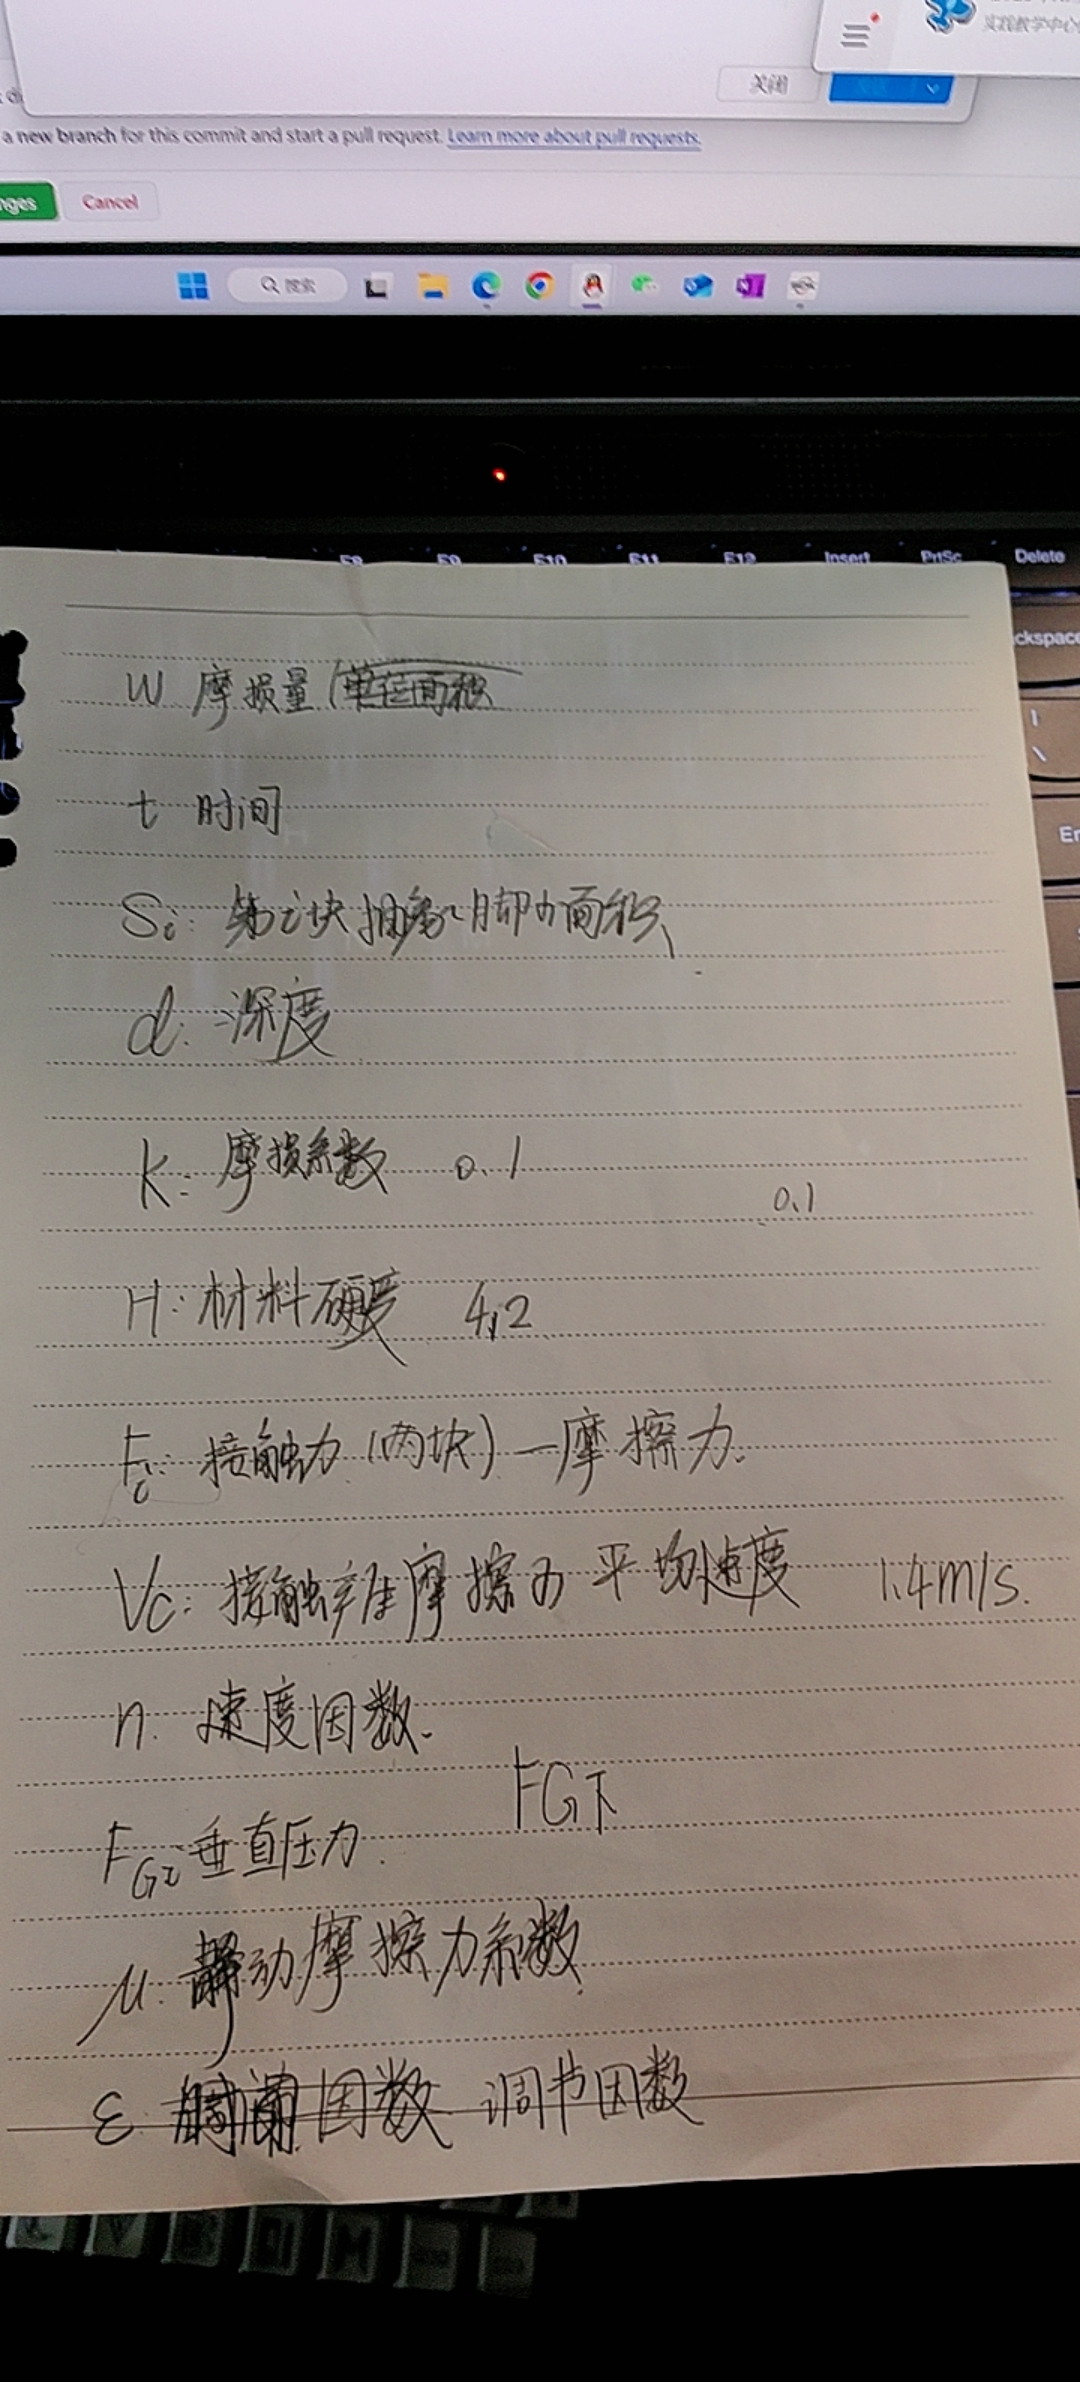 实践教学中心
关闭
a new branch for this commit and start a pull request. Learn more about pull requests.
nges Cancel
搜索
F8 F9 F10 F11 F12 Insert PrtSc Delete
ckspace
W 摩损量 (单位面积
t 时间
Si: 第i块 脚的面积
d: 深度
K: 摩损系数 0.1
0.1
H: 材料硬度 4.2
Fi: 接触力 (两块) — 摩擦力.
Vc: 接触产生摩擦的平均速度 1.4m/s.
n. 速度因数.
FG下
FGi 垂直压力.
μ. 动摩擦力系数
ε. 因数 调节因数